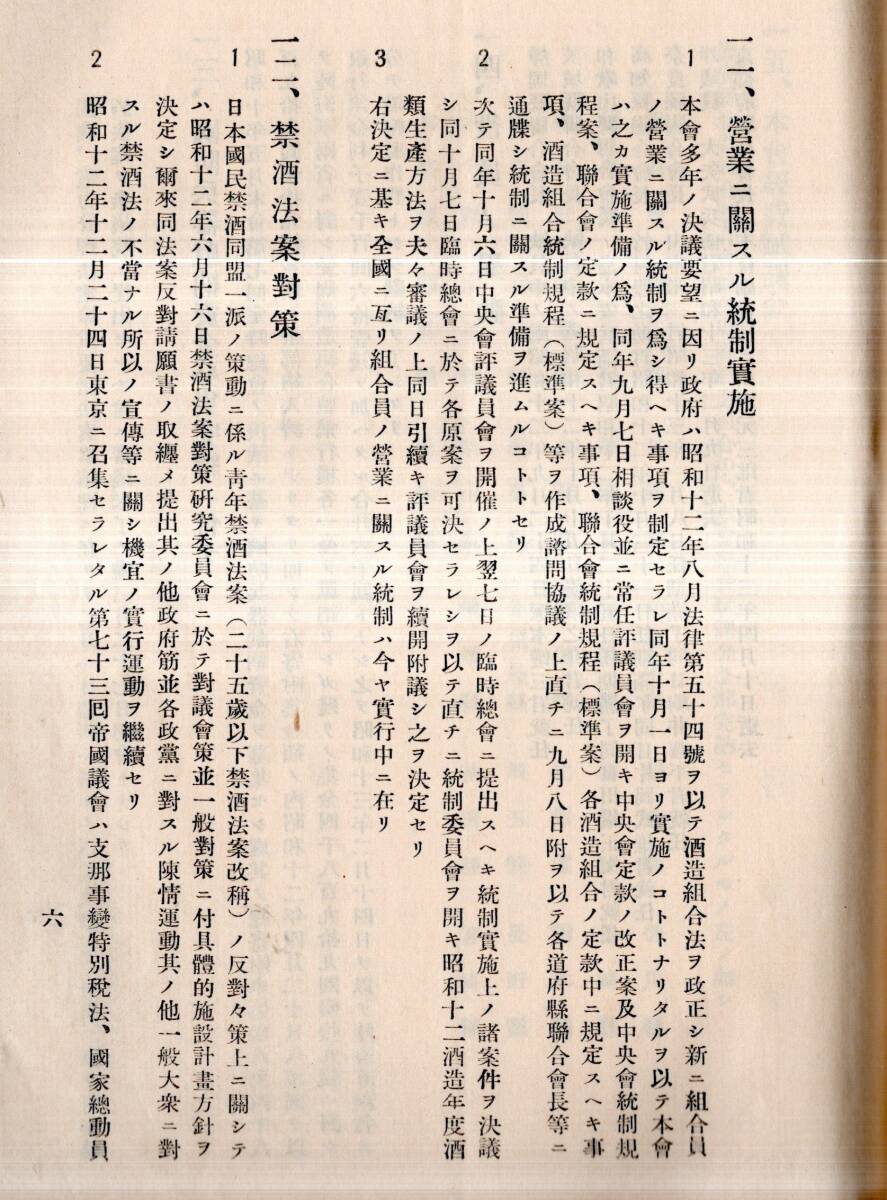 一一、營業ニ關スル統制實施
1 本會多年ノ決議要望ニ因リ政府ハ昭和十二年八月法律第五十四號ヲ以テ酒造組合法ヲ改正シ新ニ組合員
ノ營業ニ關スル統制ヲ爲シ得ヘキ事項ヲ制定セラレ同年十月一日ヨリ實施ノコトトナリタルヲ以テ本會
ハ之カ實施準備ノ爲、同年九月七日相談役並ニ常任評議員會ヲ開キ中央會定款ノ改正案及中央會統制規
程案、聯合會ノ定款ニ規定スヘキ事項、聯合會統制規程（標準案）各酒造組合ノ定款中ニ規定スヘキ事
項、酒造組合統制規程（標準案）等ヲ作成諮問協議ノ上直チニ九月八日附ヲ以テ各道府縣聯合會長等ニ
通牒シ統制ニ關スル準備ヲ進ムルコトトセリ
2 次テ同年十月六日中央會評議員會ヲ開催ノ上翌七日ノ臨時總會ニ提出スヘキ統制實施上ノ諸案件ヲ決議
シ同十月七日臨時總會ニ於テ各原案ヲ可決セラレシヲ以テ直チニ統制委員會ヲ開キ昭和十二酒造年度酒
類生產方法ヲ夫々審議ノ上同日引續キ評議員會ヲ續開附議シ之ヲ決定セリ
3 右決定ニ基キ全國ニ亙リ組合員ノ營業ニ關スル統制ハ今ヤ實行中ニ在リ
一二、禁酒法案對策
1 日本國民禁酒同盟一派ノ策動ニ係ル靑年禁酒法案（二十五歲以下禁酒法案改稱）ノ反對々策上ニ關シテ
ハ昭和十二年六月十六日禁酒法案對策硏究委員會ニ於テ對議會策並一般對策ニ付具體的施設計畫方針ヲ
決定シ爾來同法案反對請願書ノ取纒メ提出其ノ他政府筋並各政黨ニ對スル陳情運動其ノ他一般大衆ニ對
スル禁酒法ノ不當ナル所以ノ宣傳等ニ關シ機宜ノ實行運動ヲ繼續セリ
2 昭和十二年十二月二十四日東京ニ召集セラレタル第七十三囘帝國議會ハ支那事變特別稅法、國家總動員
六